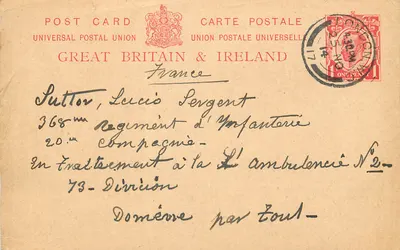 POST CARD CARTE POSTALE
UNIVERSAL POSTAL UNION UNION POSTALE UNIVERSELLE
GREAT BRITAIN & IRELAND
France
Suttor, Lucio Sergent
368me Regiment d'Infanterie
20me Compagnie
En Traitement à la Ambulencie No 2-
73- Division
Domèvre par Toul-
LONDON
14
17
ONE PENNY